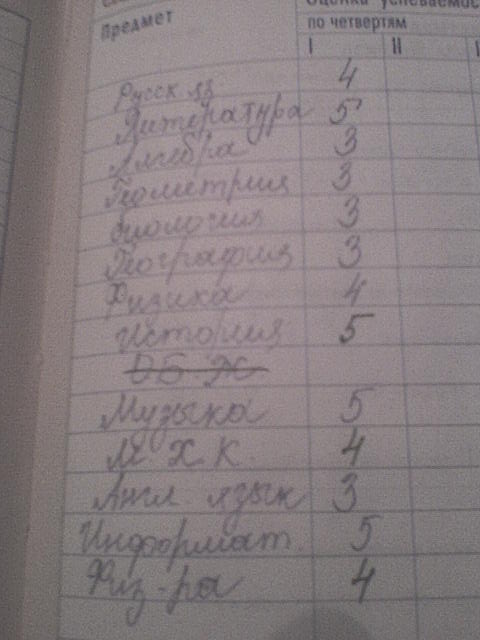 Оценка успеваемос
Предмет
по четвертям
I II
Русск яз 4
Литература 5
Алгебра 3
Геометрия 3
биология 3
География 3
Физика 4
История 5
ОБЖ
Музыка 5
М Х К. 4
Англ. язык 3
Информат. 5
Физ-ра 4